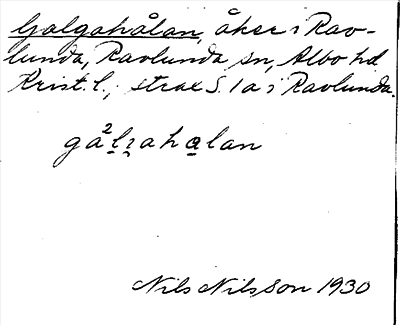 Galgahålan, åker i Rav-
lunda, Ravlunda sn, Albo hd
Krist. l., strax S. 1 a i Ravlunda.
ga²l̥ɿahalan
Nils Nilsson 1930